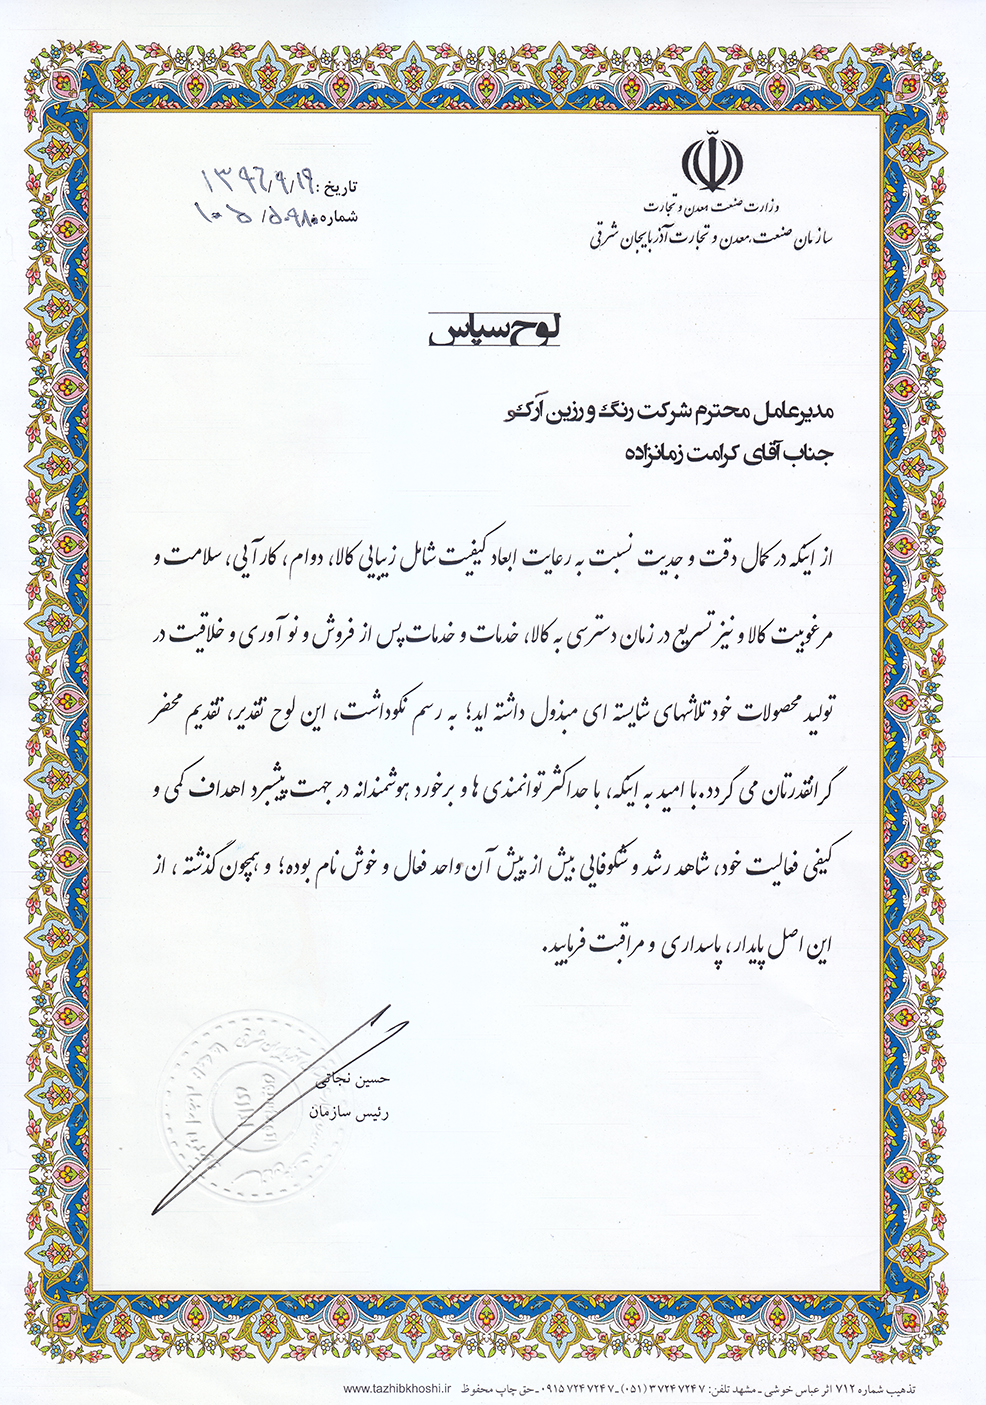 وزارت صنعت، معدن و تجارت
سازمان صنعت، معدن و تجارت آذربایجان شرقی
تاریخ: ۱۳۹۶/۹/۱۹
شماره:
لوح سپاس
مدیرعامل محترم شرکت رنگ و رزین آرکو
جناب آقای کرامت زمانزاده
از اینکه در کمال دقت و جدیت نسبت به رعایت ابعاد کیفیت شامل زیبایی کالا، دوام، کارآیی، سلامت و
مرغوبیت کالا و نیز تسریع در زمان دسترسی به کالا، خدمات و خدمات پس از فروش و نوآوری و خلاقیت در
تولید محصولات خود تلاشهای شایسته ای مبذول داشته اید؛ به رسم نکوداشت، این لوح تقدیر، تقدیم محضر
گرانقدرتان می گردد. با امید به اینکه، با حداکثر توانمندی ها و برخورد هوشمندانه در جهت پیشبرد اهداف کمی و
کیفی فعالیت خود، شاهد رشد و شکوفایی بیش از پیش آن واحد فعال و خوش نام بوده؛ و همچون گذشته، از
این اصل پایدار، پاسداری و مراقبت فرمایید.
حسین نجاتی
رئیس سازمان
تذهیب شماره ۷۱۲ اثر عباس خوشی ـ مشهد تلفن: ۳۷۲۴۷۲۴۷ (۰۵۱) ـ ۰۹۱۵۷۲۴۷۲۴۷ ـ حق چاپ محفوظ www.tazhibkhoshi.ir